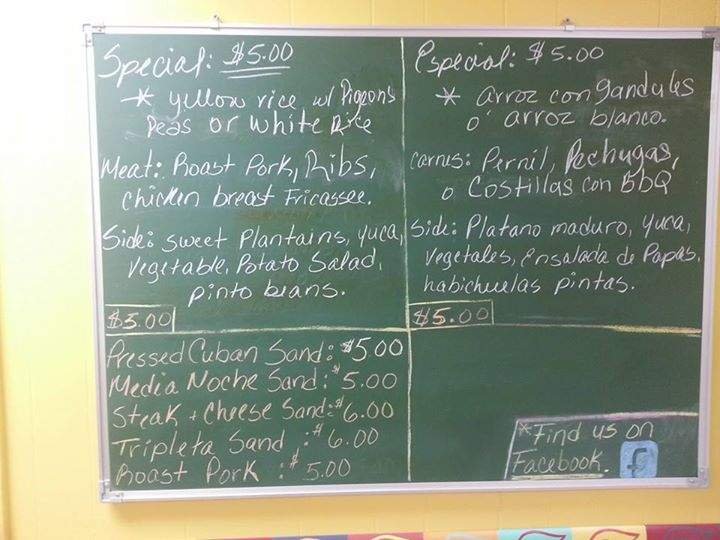 Special: $5.00
* yellow rice w/ Pigeons
Peas or white Rice
Meat: Roast Pork, Ribs,
chicken breast Fricassee.
Side: sweet Plantains, yuca,
Vegetable, Potato Salad,
pinto beans.
$5.00
Especial: $5.00
* arroz con gandules
o' arroz blanco.
carnes: Pernil, Pechugas,
o Costillas con BBQ
Side: Platano maduro, yuca,
vegetales, Ensalada de Papas,
habichuelas pintas.
$5.00
Pressed Cuban Sand: $5.00
Media Noche Sand: $5.00
Steak + Cheese Sand: $6.00
Tripleta Sand : $6.00
Roast Pork : $5.00
*Find us on
Facebook. f